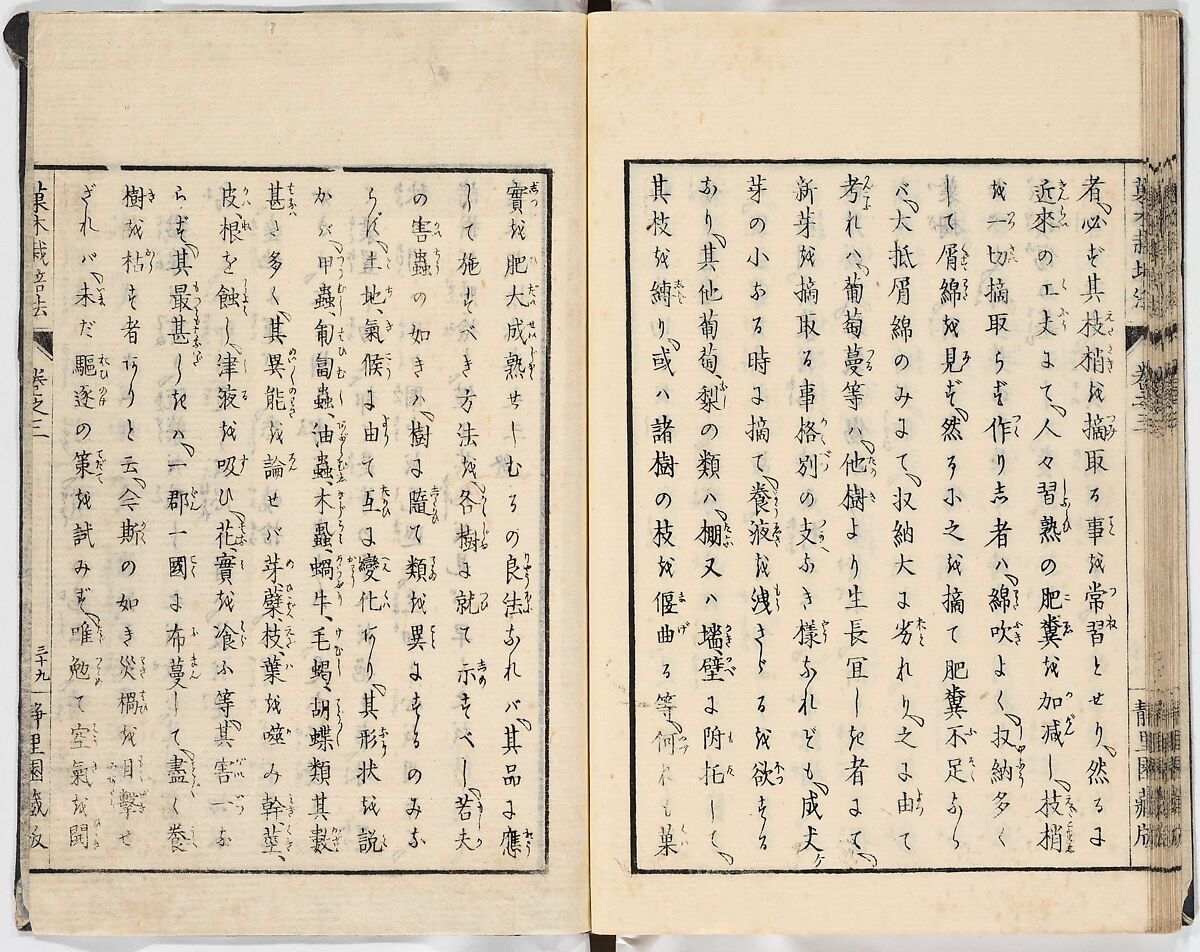 者、必ず其枝梢を摘取る事を常習とせり、然るに
近來の工夫にて、人々習熟の肥糞を加減し、枝梢
を一切摘取らず作り志者ハ、綿吹よく、収納多く
して屑綿を見ず、然るに之を摘て肥糞不足なら
べ、大抵屑綿のみにて、収納大に劣れり、之に由て
考れハ、葡萄蔓等ハ、他樹より生長冝しき者にて、
新芽を摘取る事格別の支なき様なれども、成丈ケ
芽の小なる時に摘て、養液を洩さゞるを欲する
なり、其他葡萄、梨の類ハ、棚又ハ墻、壁に附托して、
其枝を縛り、或ハ諸樹の枝を偃曲る等、何れも菓
實を肥大成熟せしむるの良法なれバ、其品に應
して施すべき方法を、各樹に就て示すべし、若夫
の害蟲の如きハ、樹に隨て類を異にするのみな
らず、土地、氣候に由て互に變化あり、其形状を説
かバ、甲蟲、匍匐蟲、油蟲、木蝨、蝸牛、毛蝎、胡蝶類其數
甚さ多く、其異能を論せバ、芽、蘗、枝、葉を噬み、幹莖、
皮、根を蝕し、津液を吸ひ、花、實を飡ふ等、其害一な
らず、其最甚しきハ、一郡一國に布蔓して、盡く養
樹を枯す者ありと云、今斯の如き災禍を目擊せ
ざれバ、未だ驅逐の策を試みず、唯勉て空氣を開
菓木栽培法
卷之三
三十九
静里園藏版